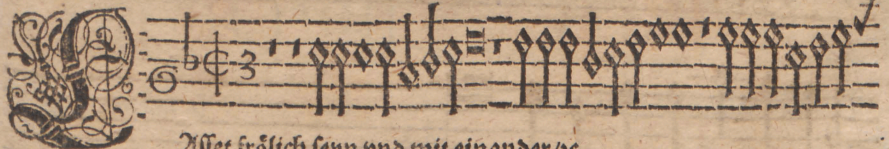 LAsset frölich seyn und mit einander ꝛc.